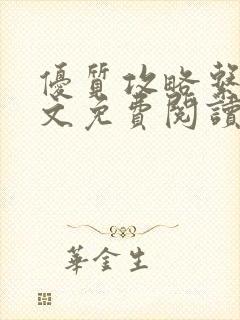 優質攻略系
文免費閱讀
華金生